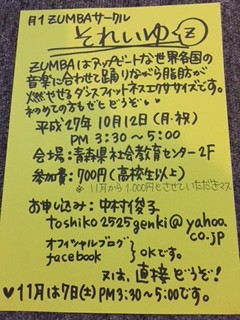 月1 ZUMBAサークル
それいゆ Z
ZUMBAはアップビートな世界各国の
音楽に合わせて踊りながら脂肪が
燃やせるダンスフィットネスエクササイズです。
初めての方もぜひどうぞ♡
平成27年10月12日(月・祝)
PM 3:30～5:00
会場:青森県社会教育センター2F
参加費:700円(高校生以上)
※11月から1,000円とさせていただきマス
お申し込み:中村俊子
toshiko2525genki@yahoo.
co.jp
オフィシャルブログ
facebook } OKです。
又は、直接どうぞ!
♥11月は7日(土)PM3:30～5:00です。